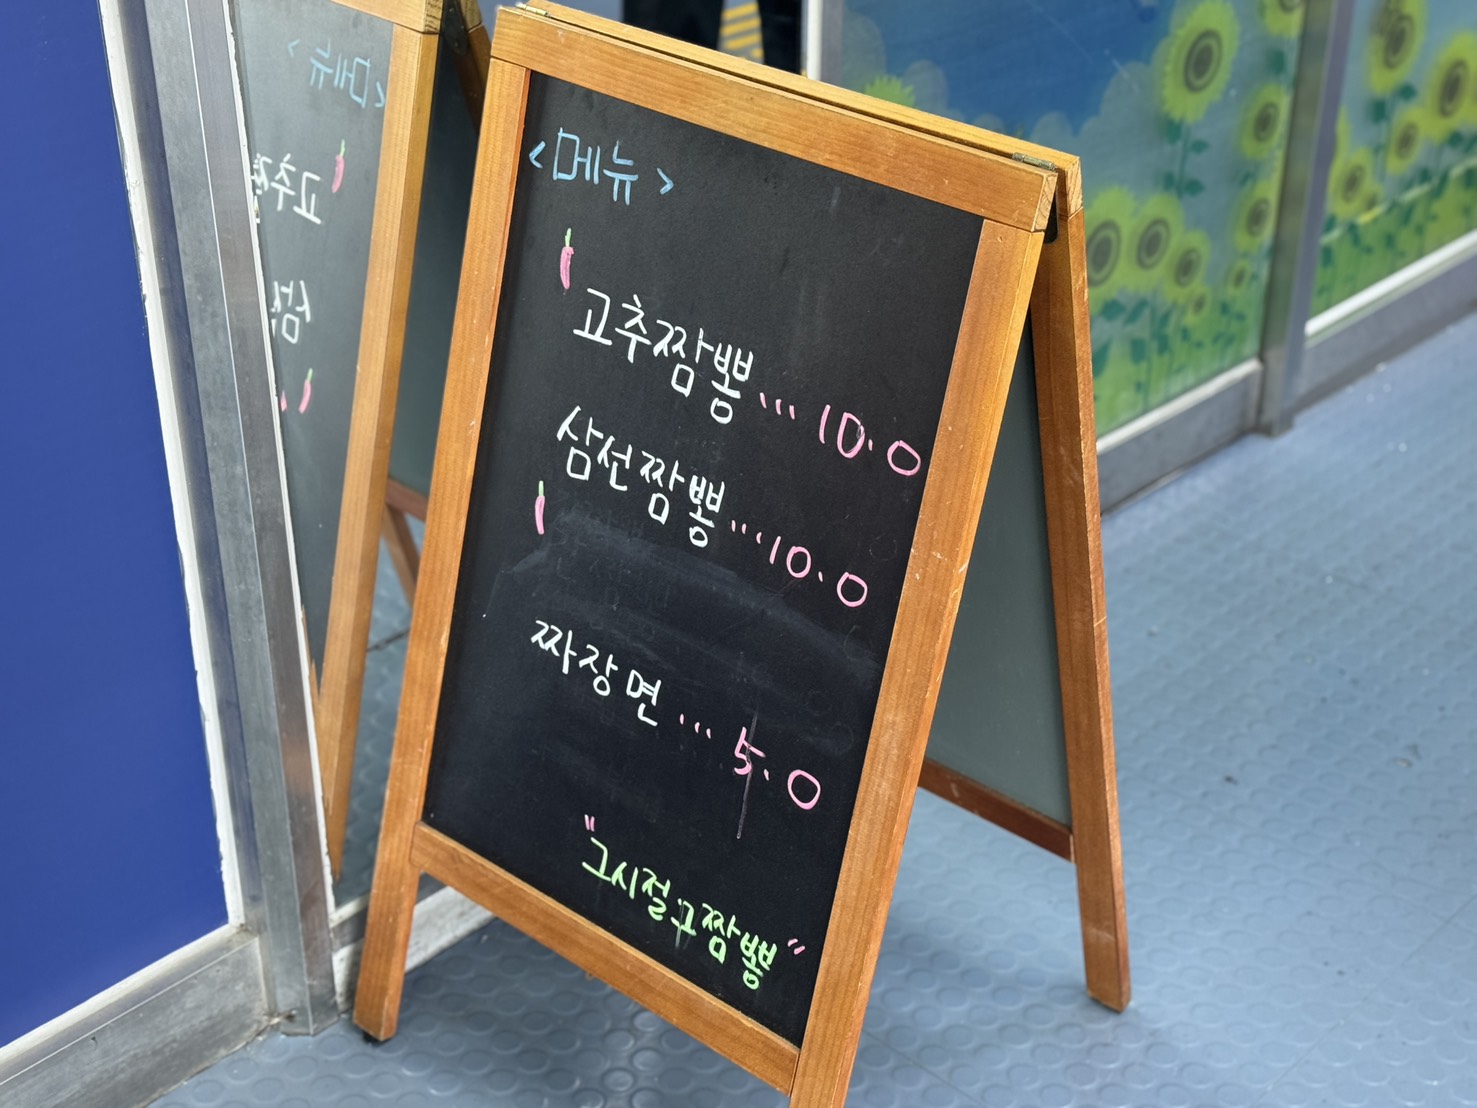 <메뉴>
고추짬뽕... 10.0
삼선짬뽕... 10.0
짜장면... 5.0
"그시절그짬뽕"